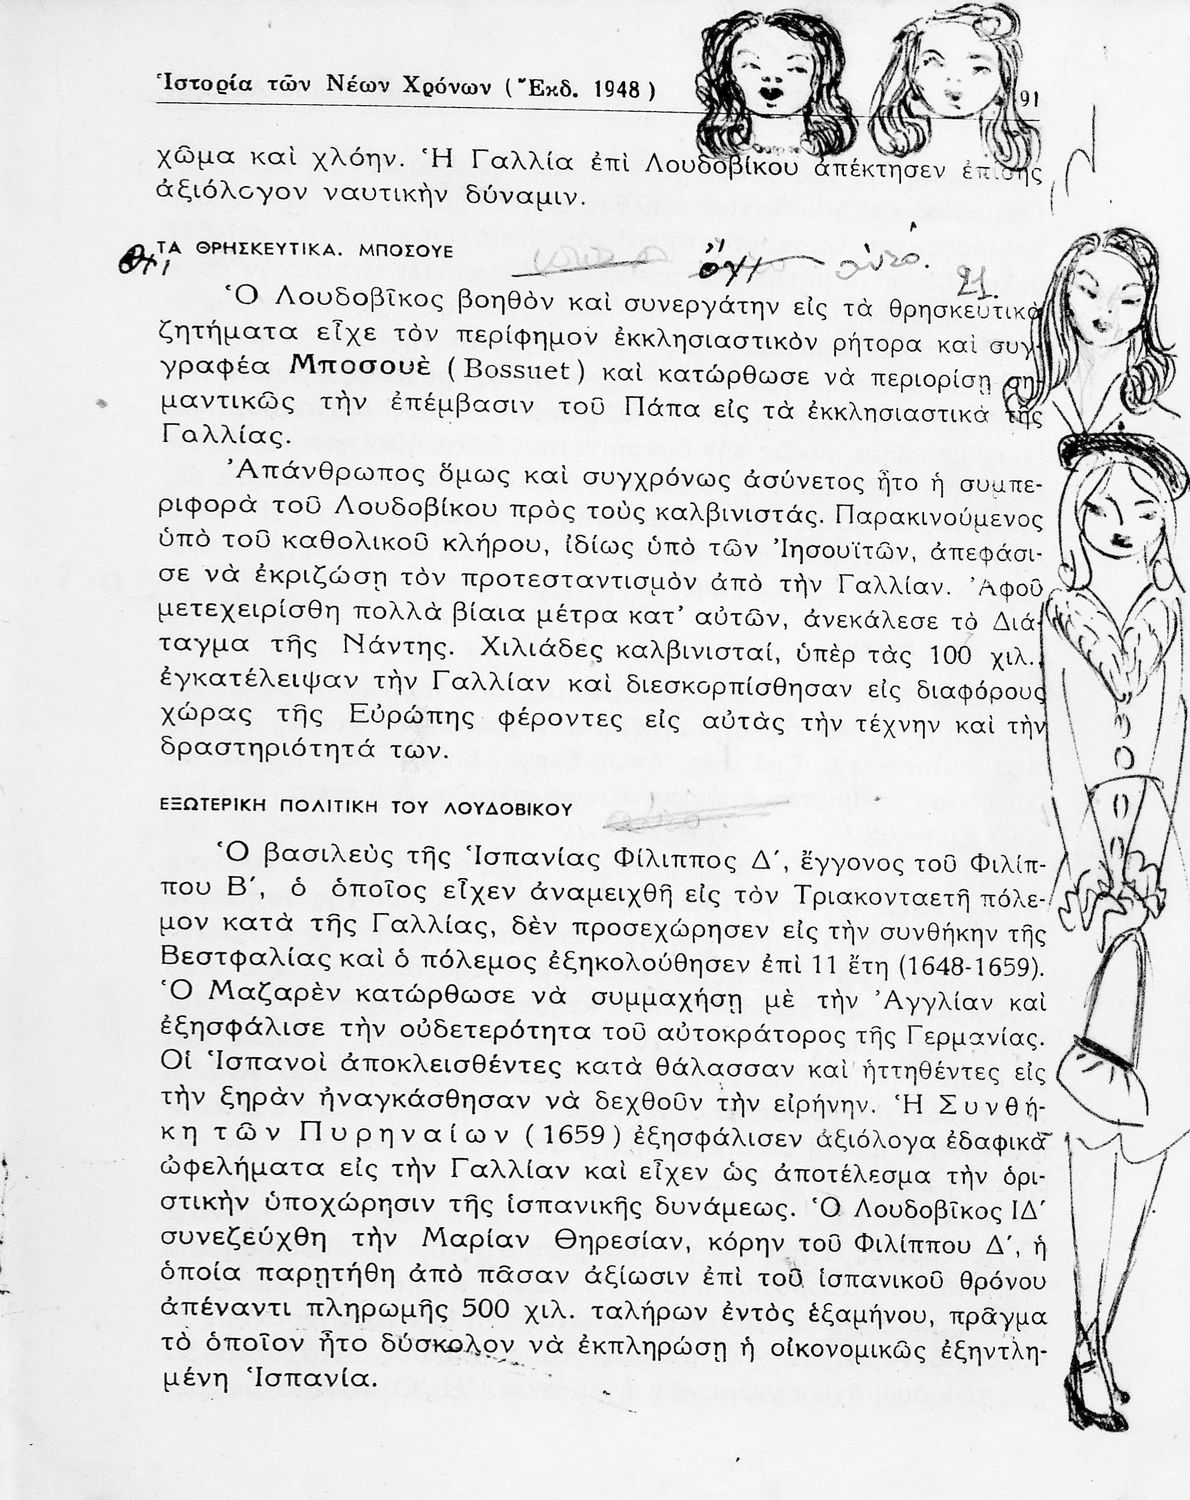 Ἱστορία τῶν Νέων Χρόνων (Ἔκδ. 1948)
91
χῶμα καὶ χλόην. Ἡ Γαλλία ἐπὶ Λουδοβίκου ἀπέκτησεν ἐπίσης
ἀξιόλογον ναυτικὴν δύναμιν.
ὄχι
ΤΑ ΘΡΗΣΚΕΥΤΙΚΑ. ΜΠΟΣΟΥΕ
ὄχι αὐτό.
21.
Ὁ Λουδοβῖκος βοηθὸν καὶ συνεργάτην εἰς τὰ θρησκευτικὰ
ζητήματα εἶχε τὸν περίφημον ἐκκλησιαστικὸν ρήτορα καὶ συγ-
γραφέα Μποσουὲ (Bossuet) καὶ κατώρθωσε νὰ περιορίσῃ ση-
μαντικῶς τὴν ἐπέμβασιν τοῦ Πάπα εἰς τὰ ἐκκλησιαστικὰ τῆς
Γαλλίας.
Ἀπάνθρωπος ὅμως καὶ συγχρόνως ἀσύνετος ἦτο ἡ συμπε-
ριφορὰ τοῦ Λουδοβίκου πρὸς τοὺς καλβινιστάς. Παρακινούμενος
ὑπὸ τοῦ καθολικοῦ κλήρου, ἰδίως ὑπὸ τῶν Ἰησουϊτῶν, ἀπεφάσι-
σε νὰ ἐκριζώσῃ τὸν προτεσταντισμὸν ἀπὸ τὴν Γαλλίαν. Ἀφοῦ
μετεχειρίσθη πολλὰ βίαια μέτρα κατ’ αὐτῶν, ἀνεκάλεσε τὸ Διά-
ταγμα τῆς Νάντης. Χιλιάδες καλβινισταί, ὑπὲρ τὰς 100 χιλ.,
ἐγκατέλειψαν τὴν Γαλλίαν καὶ διεσκορπίσθησαν εἰς διαφόρους
χώρας τῆς Εὐρώπης φέροντες εἰς αὐτὰς τὴν τέχνην καὶ τὴν
δραστηριότητά των.
ΕΞΩΤΕΡΙΚΗ ΠΟΛΙΤΙΚΗ ΤΟΥ ΛΟΥΔΟΒΙΚΟΥ
Ὁ βασιλεὺς τῆς Ἱσπανίας Φίλιππος Δ΄, ἔγγονος τοῦ Φιλίπ-
που Β΄, ὁ ὁποῖος εἶχεν ἀναμειχθῆ εἰς τὸν Τριακονταετῆ πόλε-
μον κατὰ τῆς Γαλλίας, δὲν προσεχώρησεν εἰς τὴν συνθήκην τῆς
Βεστφαλίας καὶ ὁ πόλεμος ἐξηκολούθησεν ἐπὶ 11 ἔτη (1648-1659).
Ὁ Μαζαρὲν κατώρθωσε νὰ συμμαχήσῃ μὲ τὴν Ἀγγλίαν καὶ
ἐξησφάλισε τὴν οὐδετερότητα τοῦ αὐτοκράτορος τῆς Γερμανίας.
Οἱ Ἱσπανοὶ ἀποκλεισθέντες κατὰ θάλασσαν καὶ ἡττηθέντες εἰς
τὴν ξηρὰν ἠναγκάσθησαν νὰ δεχθοῦν τὴν εἰρήνην. Ἡ Συνθή-
κη τῶν Πυρηναίων (1659) ἐξησφάλισεν ἀξιόλογα ἐδαφικὰ
ὠφελήματα εἰς τὴν Γαλλίαν καὶ εἶχεν ὡς ἀποτέλεσμα τὴν ὁρι-
στικὴν ὑποχώρησιν τῆς ἱσπανικῆς δυνάμεως. Ὁ Λουδοβῖκος ΙΔ΄
συνεζεύχθη τὴν Μαρίαν Θηρεσίαν, κόρην τοῦ Φιλίππου Δ΄, ἡ
ὁποία παρῃτήθη ἀπὸ πᾶσαν ἀξίωσιν ἐπὶ τοῦ ἱσπανικοῦ θρόνου
ἀπέναντι πληρωμῆς 500 χιλ. ταλήρων ἐντὸς ἑξαμήνου, πρᾶγμα
τὸ ὁποῖον ἦτο δύσκολον νὰ ἐκπληρώσῃ ἡ οἰκονομικῶς ἐξηντλη-
μένη Ἱσπανία.